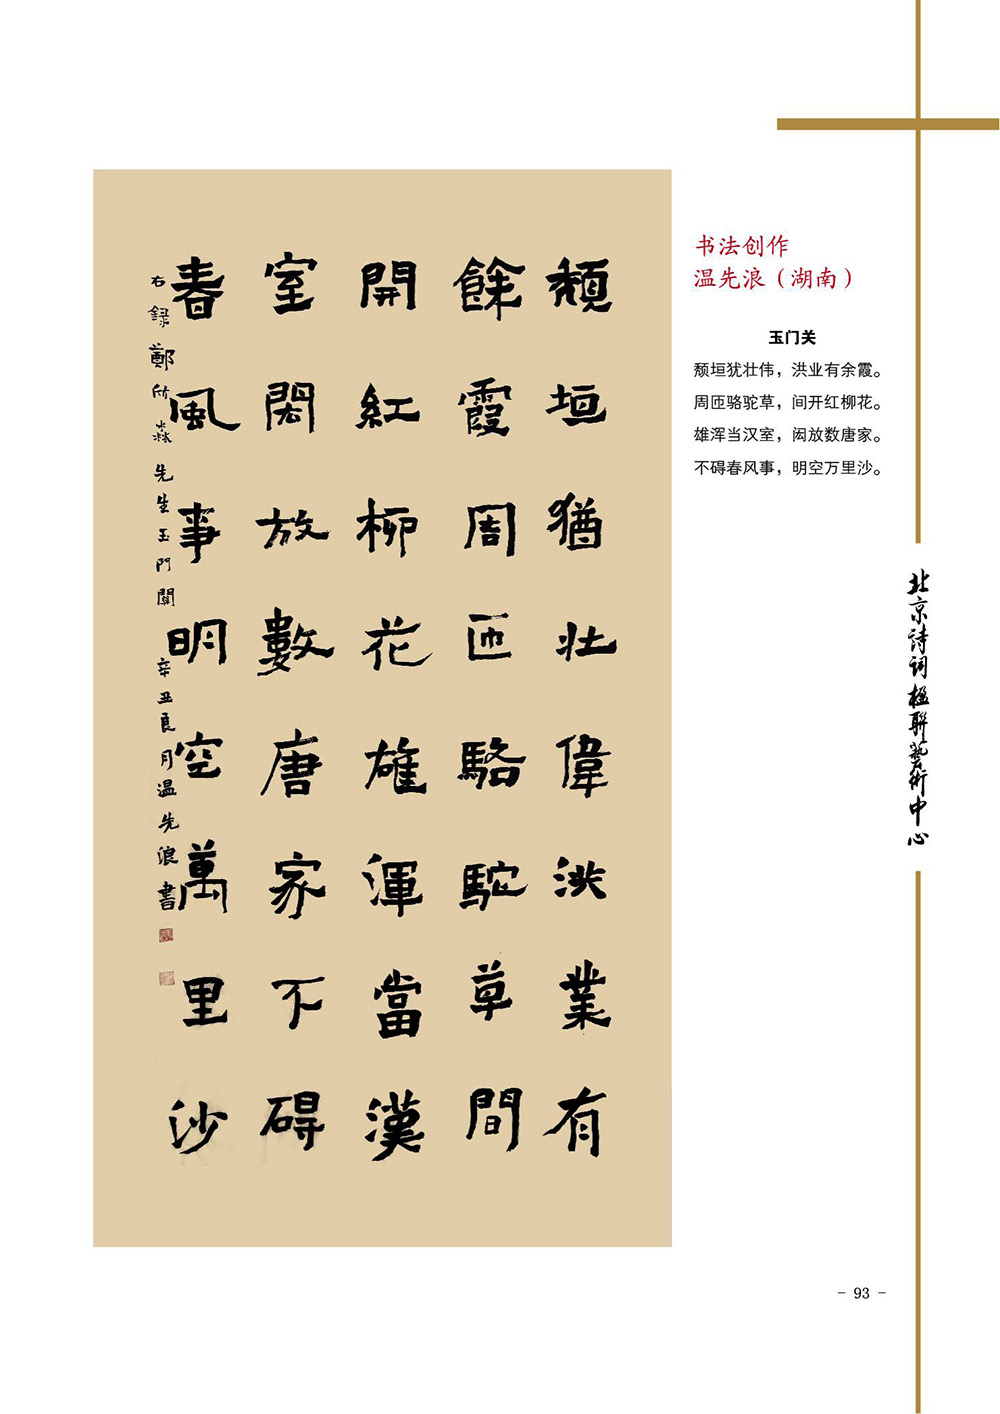 頹垣猶壯偉洪業有
餘霞周匝駱駝草間
開紅柳花雄渾當漢
室闳放數唐家不碍
春風事明空萬里沙
右録鄭欣淼先生玉門關 辛丑良月温先浪書
书法创作
温先浪（湖南）
玉门关
颓垣犹壮伟，洪业有余霞。
周匝骆驼草，间开红柳花。
雄浑当汉室，闳放数唐家。
不碍春风事，明空万里沙。
北京诗词楹聯藝術中心
- 93 -